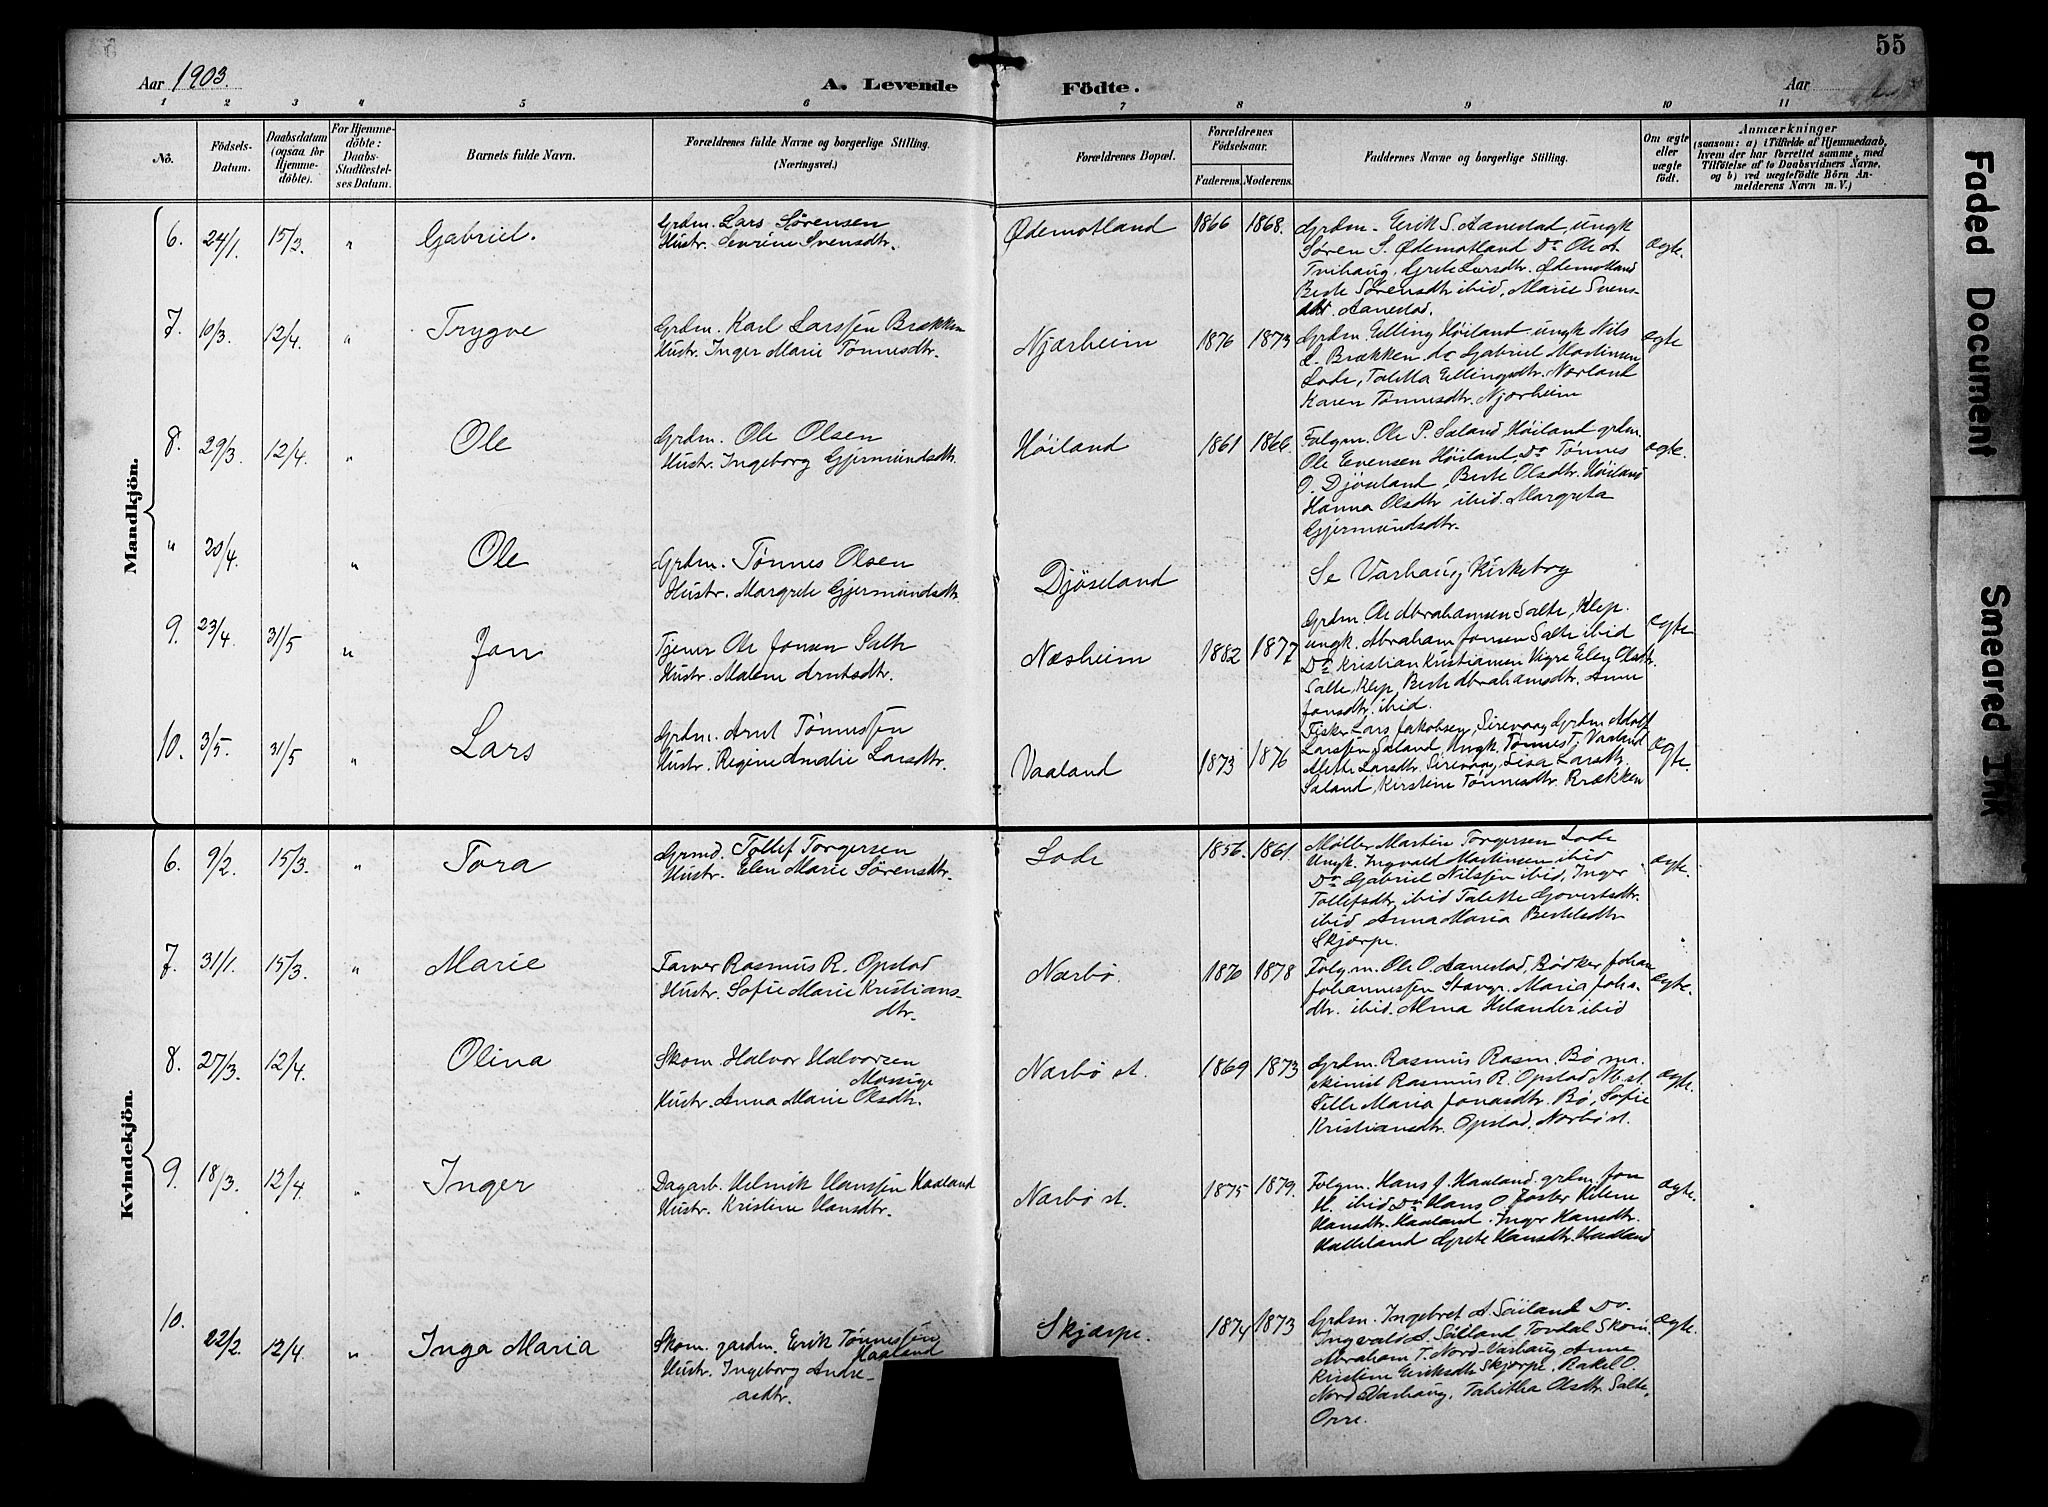 55
Aar 1903.
A. Levende Födte.
Aar
1 2 3 4 5 6 7 8 9 10 11
Nö.
Födsels-
Datum.
Daabsdatum
(ogsaa för
Hjemme-
döbte).
For Hjemme-
döbte:
Daabs-
Stadfæstel-
ses Datum.
Barnets fulde Navn.
Forældrenes fulde Navne og borgerlige Stilling.
(Næringsvei.)
Forældrenes Bopæl.
Forældrenes
Födselsaar.
Faderens. Moderens.
Faddernes Navne og borgerlige Stilling.
Om ægte
eller
uægte
födt.
Anmærkninger
(saasom: a) i Tilfælde af Hjemmedaab,
hvem der har forrettet samme, med
Tilföielse af to Daabsvidners Navne,
og b) ved uægtefödte Börn An-
melderens Navn m. V.)
Mandkjön.
6. 24/1. 15/3. " Gabriel.
Grdm. Lars Sørensen
Hustr. Sevrine Svensdtr.
Ødemotland 1866 1868.
Grdm. Erik S. Aanestad, ungk
Søren S. Ødemotland Do Ole A.
Tvihaug, Grete Larsdtr. Ødemotland
Berte Sørensdtr ibid, Marie Svens-
dtr. Aanestad.
ægte.
7. 10/3. 12/4. " Trygve
Grdm. Karl Larssen Brækken
Hustr. Inger Marie Tønnesdtr.
Njærheim 1876 1873
Grdm. Elling Høiland ungk Nils
L. Brækken do Gabriel Martinsen
Lode, Taletta Ellingsdtr. Nærland
Karen Tønnesdtr. Njærheim
ægte
8. 29/3 12/4. " Ole
Grdm. Ole Olsen
Hustr. Ingeborg Gjermundsdtr.
Høiland 1861 1866.
Folgm. Ole P. Saland, Høiland grdm.
Ole Evensen Høiland, Do Tønnes
O. Djøseland, Berte Olsdtr. Høiland
Hanna Olsdtr ibid. Margreta
Gjermundsdtr.
ægte.
" 20/4. " Ole
Grdm. Tønnes Olsen
Hustr. Margrete Gjermundsdtr.
Djøseland
Se Varhaug Kirkebog
9. 23/4 31/5 " Jon
Tjener Ole Jonsen Salte
Hustr. Malene Arntsdtr.
Næsheim 1882 1877
Grdm Ole Abrahamsen Salte, Klep.
ungk. Abraham Jonsen Salte ibid
Do Kristian Kristiansen Vigre Elen Olsdtr.
Salte, Klep, Berte Abrahamsdtr. Anne
Jonsdtr. ibid.
ægte
10. 3/5. 31/5 " Lars
Grdm. Arnt Tønnessen
Hustr. Regine Amalie Larsdtr.
Vaaland 1873 1876
Fisker Lars Jakobsen, Sirevaag Grdm Adolf
Larssen Saland, Ungk. Tønnes T. Vaaland
Mette Larsdtr. Sirevaag, Lisa Larsdtr.
Saland, Kirstine Tønnesdtr. Brækken
Ægte.
Kvindekjön.
6. 9/2. 15/3. " Tora
Grmd. Tollef Torgersen
Hustr. Elen Marie Sørensdtr.
Lode 1856. 1861.
Møller Martin Torgersen Lode
Ungk. Ingvald Martinsen ibid
Do Gabriel Nilssen ibid, Inger
Tollefsdtr. ibid Talette Govertsdtr.
ibid Anna Maria Bertelsdtr
Skjærpe.
ægte.
7. 31/1. 15/3. " Marie
Farver Rasmus R. Opstad
Hustr. Sofie Marie Kristians-
dtr.
Nærbø. 1870 1878
Folgm. Ole O. Aanestad, Bødker Johan
Johannessen Stavgr. Maria Johs-
dtr. ibid. Alma Helander ibid
ægte.
8. 27/3. 12/4. Olina
Skom. Halvor Halvorsen
Mossige
Hustr. Anna Marie Olsdtr.
Nærbø st. 1869 1873
Grdm. Rasmus Rasm. Bø ma-
skinist Rasmus R. Opstad Nb.st.
Sille Maria Jonasdtr. Bø, Sofie
Kristiansdtr. Opstad. Nærbø st.
ægte.
9. 18/3. 12/4. " Inger
Dagarb. Helmik Hanssen Haaland
Hustr. Kristine Hansdtr.
Nærbø st. 1875 1879.
Folgm. Hans J. Haaland, grdm. Jon
H. ibid Do Hans O.
Hansdtr. Haaland. Inger Hansdtr.
Hælleland Grete Hansdtr. Haaland
ægte.
10. 22/2. 12/4. " Inga Maria
Skom. gardm. Erik Tønnessen
Haaland
Hustr. Ingeborg Andre-
asdtr.
Skjærpe. 1874 1873
Grdm. Ingebret A. Söiland Do
Ingvald A. Söiland Tordal Skom.
Abraham T. Nord-Varhaug, Anne
Kirstine Eriksdtr Skjærpe. Rakel O.
Nord Varhaug, Tabitha Olsdtr. Salte,
Orre.
ægte.
Faded Document
Smeared Ink